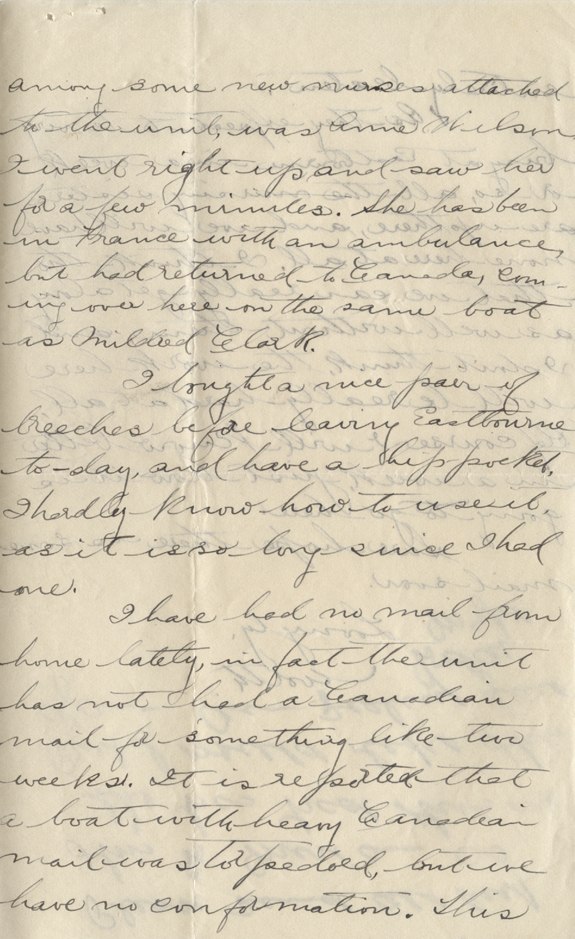 among some new nurses attached
to the unit, was Anne Wilson
I went right up, and saw her
for a few minutes. She has been
in France with an ambulance,
but had returned to Canada, com-
ing over here on the same boat
as Mildred Clark.
I bought a nice pair of
breeches before leaving Eastbourne
to-day, and have a hip pocket.
I hardly know how to use it,
as it is so long since I had
one.
I have had no mail from
home lately, in fact the unit
has not had a Canadian
mail for something like two
weeks. It is reported that
a boat with heavy Canadian
mail was torpedoed, but we
have no conformation. This